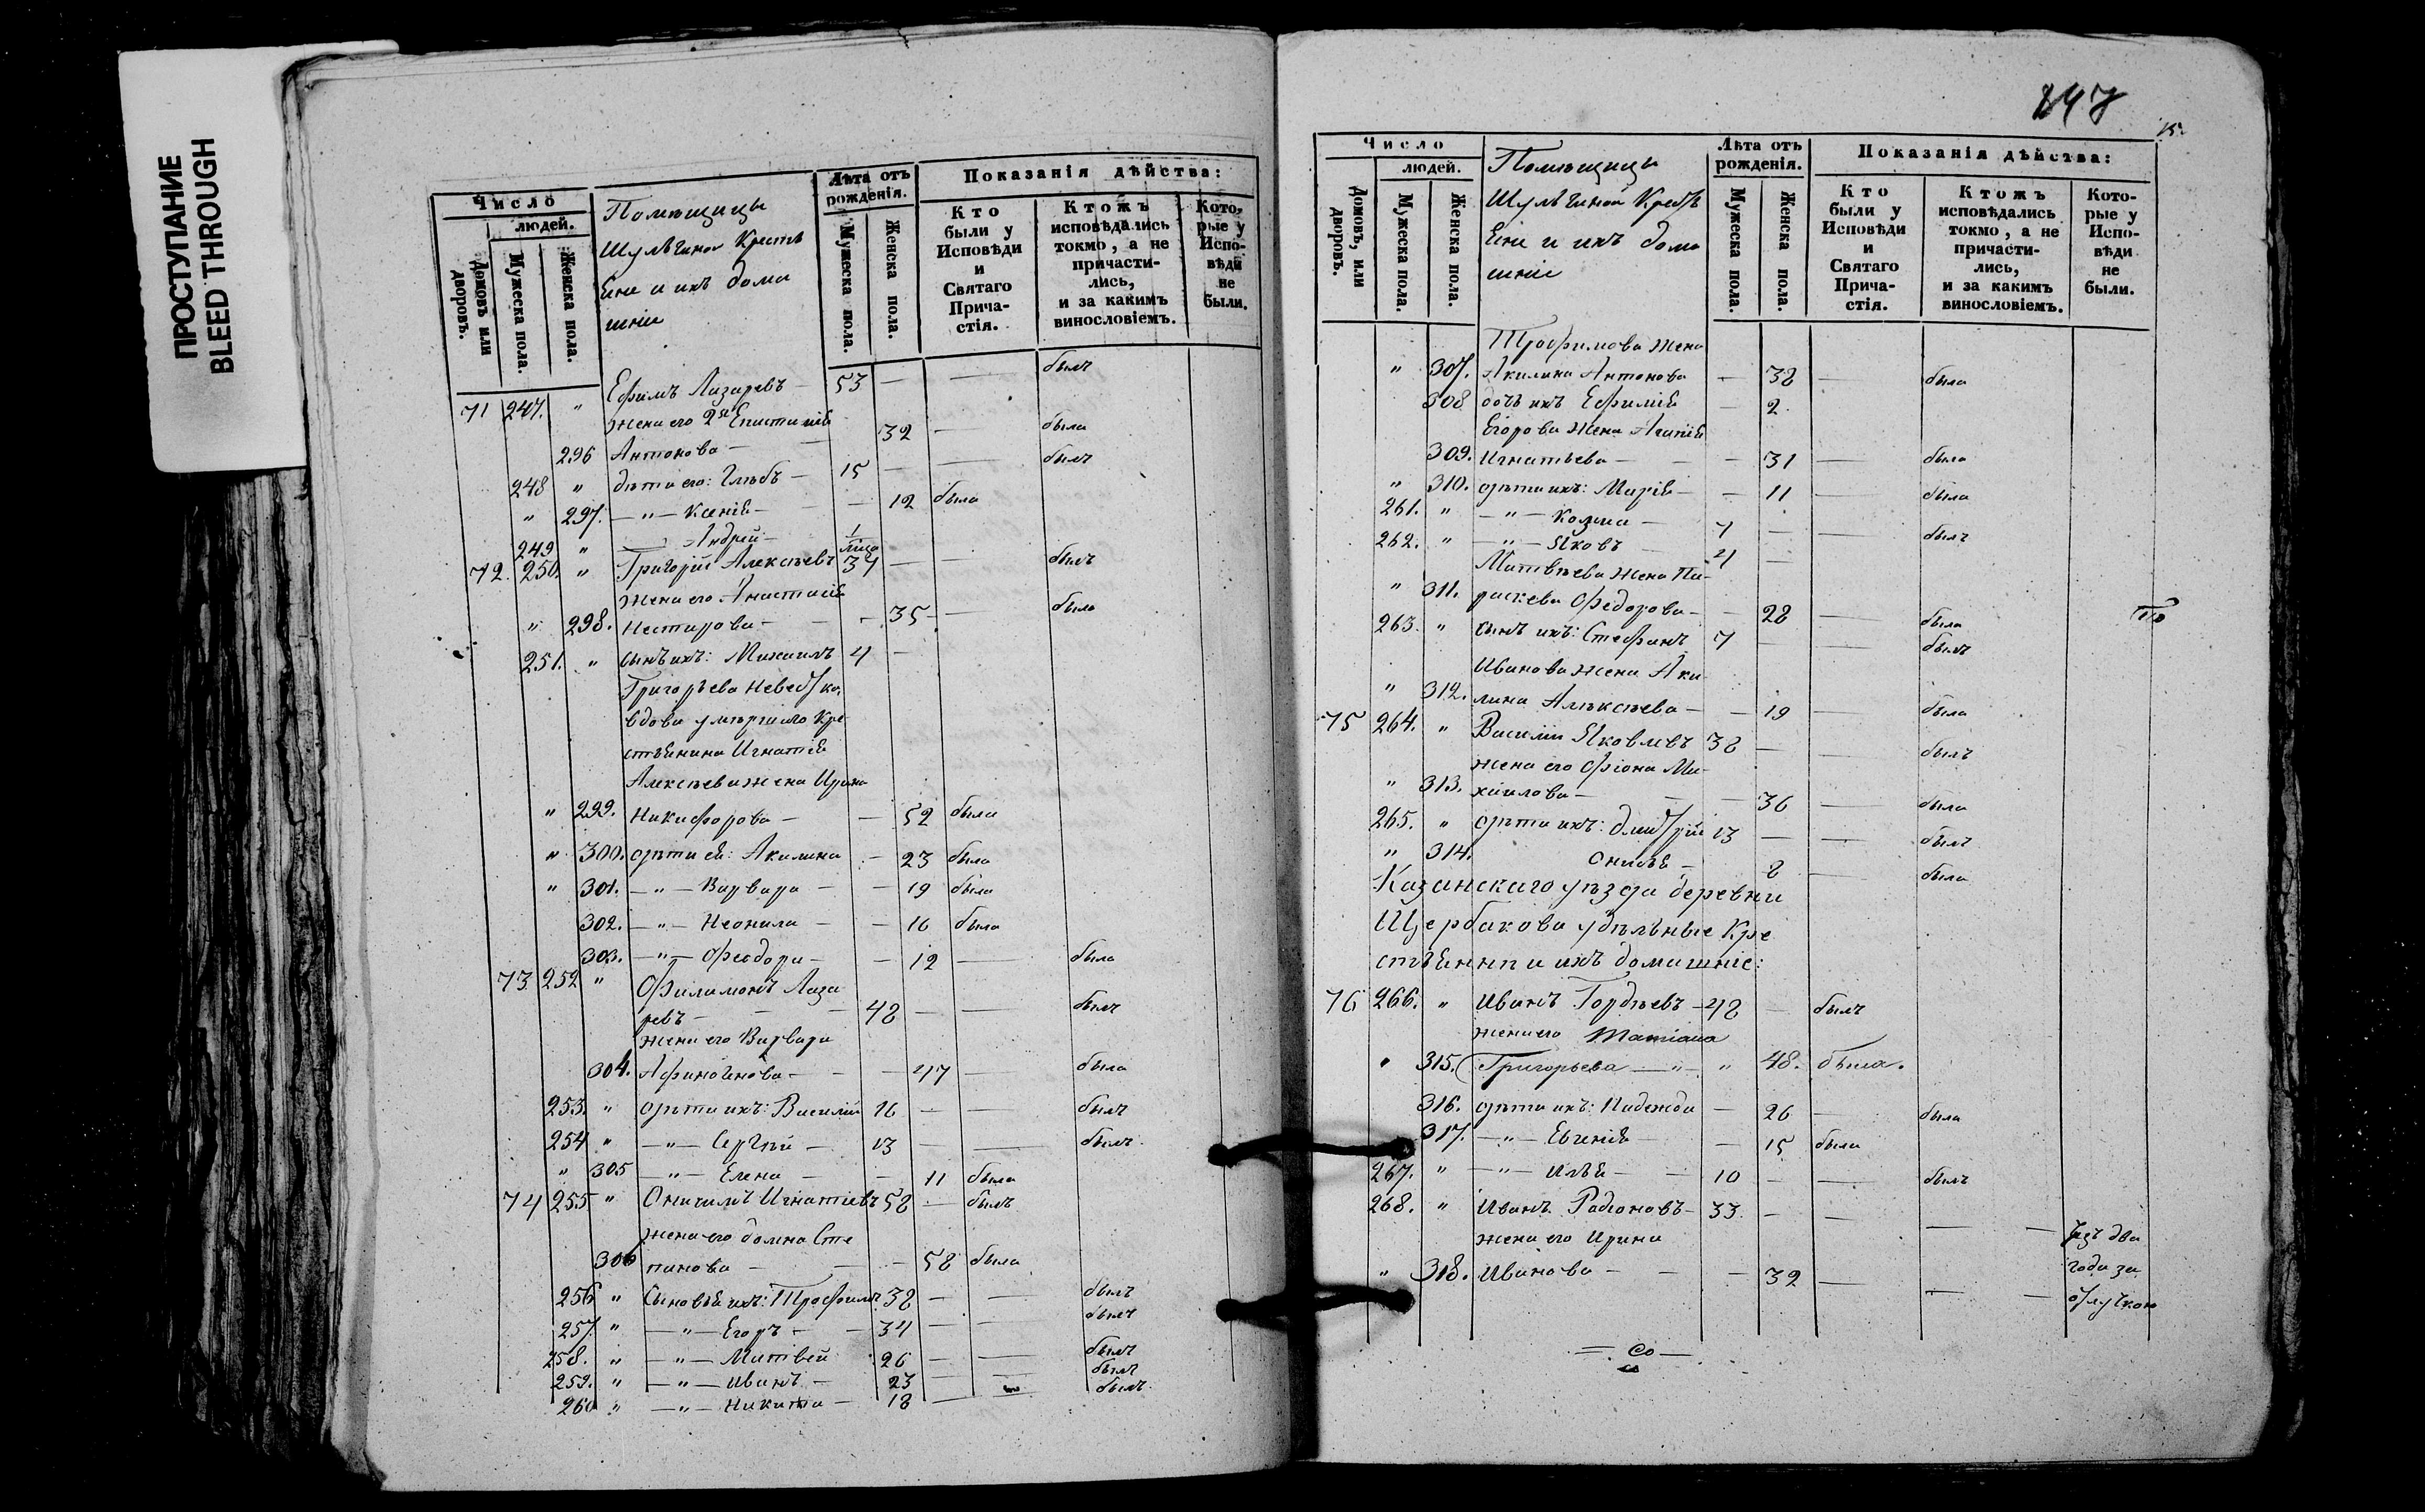 ПРОСТУПАНИЕ
BLEED THROUGH
Число
людей.
Домовъ или дворовъ.
Мужеска пола.
Женска пола.
Помѣщицы
Шульгиной Крестъ
яне и ихъ дома
шніе
Лѣта отъ рожденія.
Мужеска пола.
Женска пола.
Показанія дѣйства:
Кто были у Исповѣди и Святаго Причастія.
Ктожъ исповѣдались токмо, а не причастились, и за какимъ винословіемъ.
Которые у Исповѣди не были.
71 247. " Ефимъ Лазаревъ — 53 — — былъ
жена его 2я Епистимія
296 Антонова — 32 — была
248 " дѣти его: Глѣбъ — 15 — — былъ
" 297. — " — Ксенія — — 12 была
249 " — Андрей —
72. 250. " Григорій Алексѣевъ 34 — — былъ
жена его Анастасія
" 298. Нестерова — — 35 — была
251. " сынъ ихъ: Михаилъ 4 —
Григорьева невестка,
вдова умершаго Кре
стьянина Игнатія
Алексѣева жена Ирина
" 299. Никифорова — — 52 была
" 300. дѣти ея: Акилина — 23 была
" 301. — " — Варвара — — 19 была
302. — " — Неонила — — 16 была
303. — " — Феодора — — 12 — была
73. 252 " Филимонъ Лаза
ревъ — — 48 — — былъ
жена его Варвара
304. Афиногенова — — 47 — была
253. " дѣти ихъ: Василій 16 — — былъ
254 " — " — Сергѣй — 13 — — былъ.
" 305 — " — Елена — — 11 была
74 255 " Онисимъ Игнатіевъ 58 — былъ
жена его Домна Сте
306 панова — — 58 была
256 " Сыновья ихъ: Трофимъ 38 — — былъ
257. " — " — Егоръ — 34 — — былъ
258. " — " — Матвѣй 26 — — былъ
259. " — " — Иванъ — 23 — — былъ
260 " — " — Никита — 18 — — былъ.
247
Число
людей.
Домовъ, или дворовъ.
Мужеска пола.
Женска пола.
Помѣщицы
Шульгиной Крестъ
яне и ихъ дома
шніе
Лѣта отъ рожденія.
Мужеска пола.
Женска пола.
Показанія дѣйства:
Кто были у Исповѣди и Святаго Причастія.
Ктожъ исповѣдались токмо, а не причастились, и за какимъ винословіемъ.
Которые у Исповѣди не были.
Трофимова жена
" 307. Акилина Антонова — 38 — была
308 дочь ихъ Ефимія — 2.
Егорова жена Агапія
309. Игнатьева — — 31 — была
" 310. дѣти ихъ: Марія — — 11 — была
261. " — " — Козма — 7 — — былъ
262. " — " — Яковъ 4 —
Матвѣева жена Па-
" 311. раскева Федорова — — 28 — была
263. " сынъ ихъ: Стефанъ 7 — — былъ
Иванова жена Аки
" 312. лина Алексѣева — — 19 — была
75 264. " Василій Яковлевъ 38 — — былъ
жена его Фіона Ми-
" 313. хайлова — — 36 — была
265. " дѣти ихъ: Дмитрій 13 — — былъ
" 314. — 8 — была
Казанскаго уѣзда деревни
Щербакова удѣльные Кре
стьянин и ихъ домашніе:
76 266. " Иванъ Гордѣевъ — 48 — былъ
жена его Татіана
" 315. Григорьева — " — " 48. была.
316. дѣти ихъ: Надежда — 26 — была
317. — " — Евгенія — — 15 была
267. " — " — Илья — 10 — — былъ
268. " Иванъ Радіоновъ — 33 — —
жена его Ирина
" 318. Иванова — — 32 —
два
года за
отлучкою